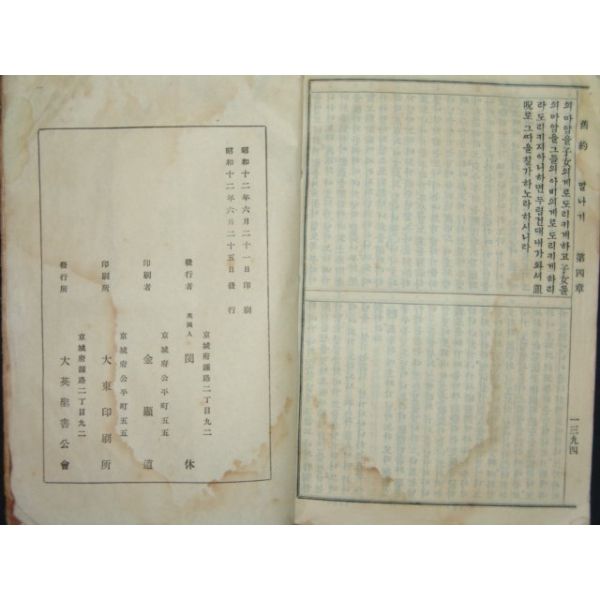 舊約 말나기 第四章 一三九四
의마암을子女의게로도리키게하고子女들
의마암을그들의아비의게로도리키게하리
라도리키지아니하면두렵건대내가와셔詛
呪로그따을칠가하노라하시니라
昭和十二年六月二十一日印刷
昭和十二年六月二十五日發行
京城府鍾路二丁目九二
發行者 英國人 閔休
京城府公平町五五
印刷者 金顯道
京城府公平町五五
印刷所 大東印刷所
京城府鍾路二丁目九二
發行所 大英聖書公會